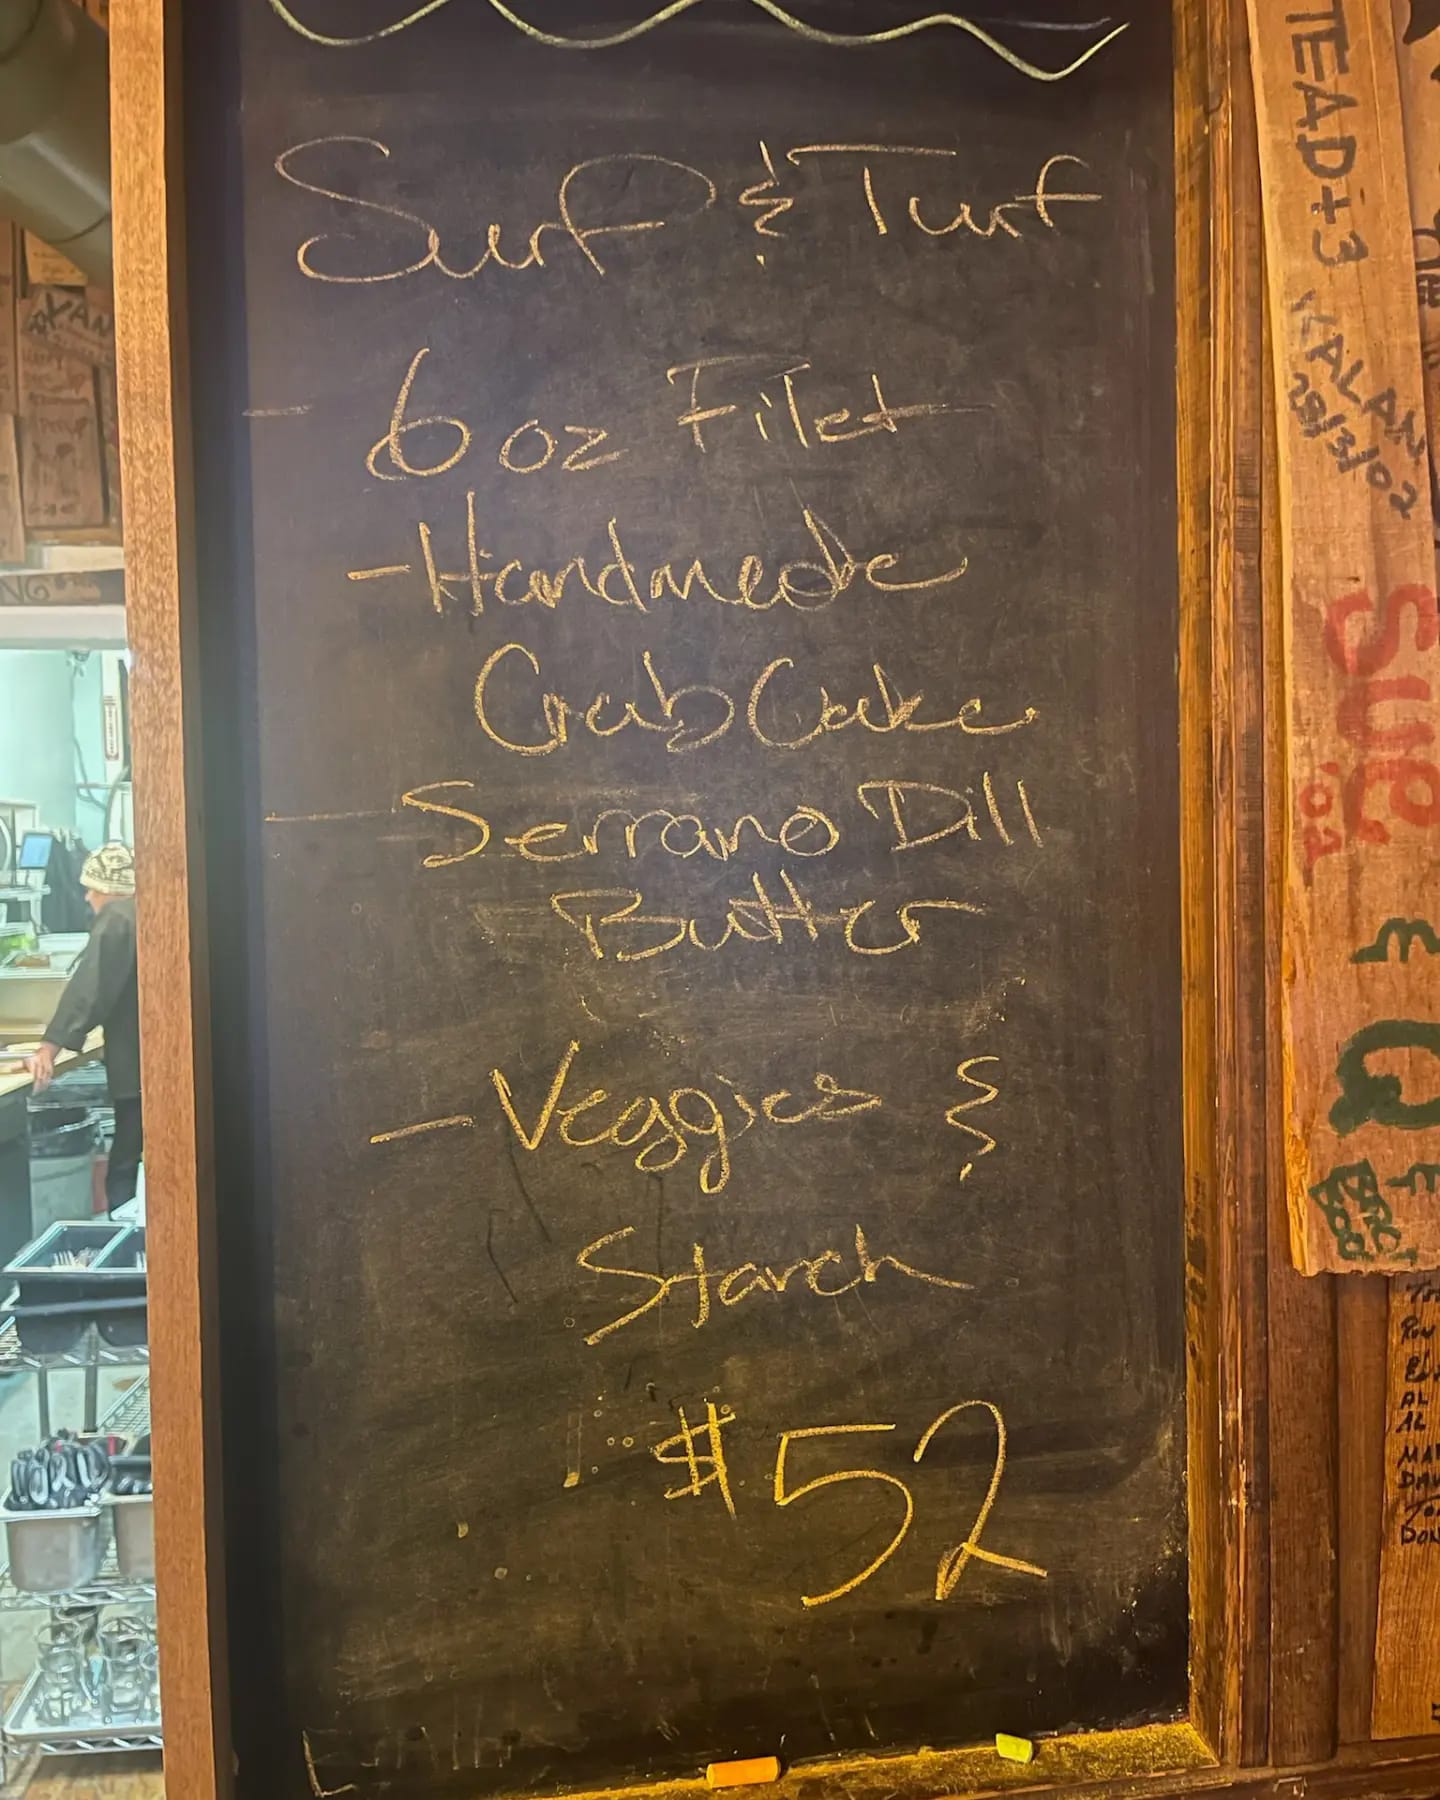 Surf & Turf
- 6 oz Filet
- Handmade
Crab Cake
- Serrano Dill
Butter
- Veggies &
Starch
$52
TEAD+3
KALAN
28/3/02
Sue
'02
RYAN
NG
AL
AL